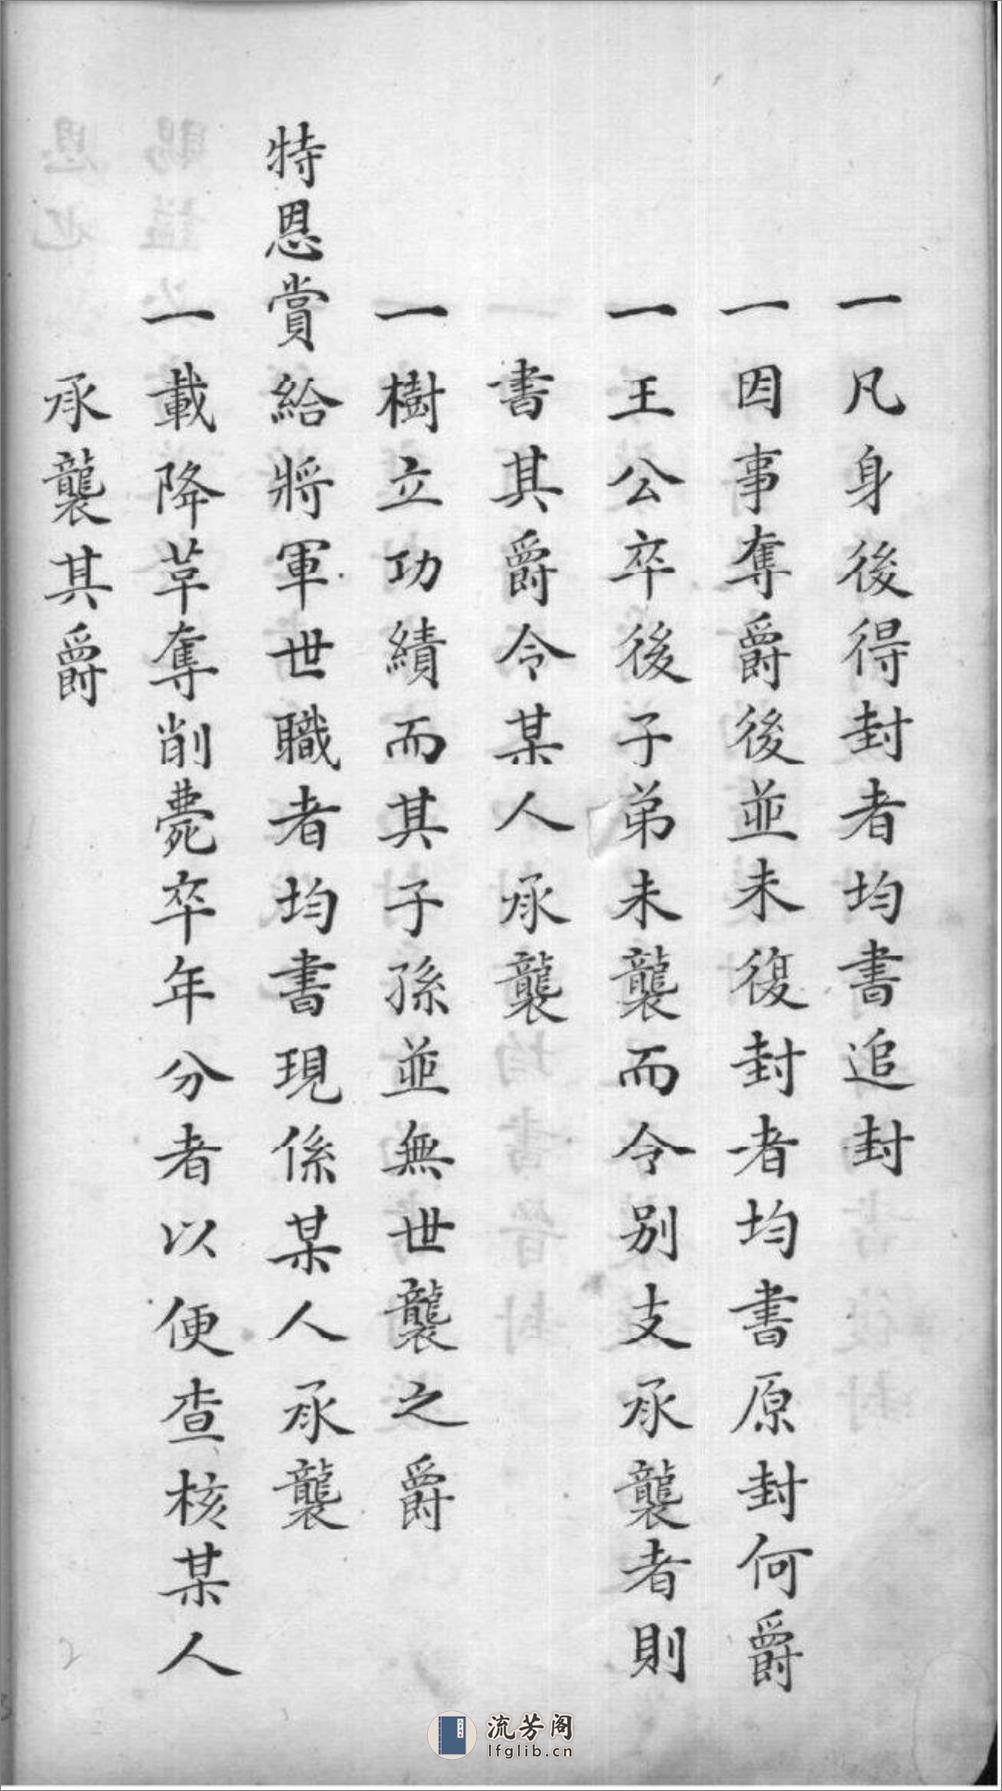 一凡身後得封者均書追封
一因事奪爵後並未復封者均書原封何爵
一王公卒後子弟未襲而令別支承襲者則
書其爵令某人承襲
一樹立功績而其子孫並無世襲之爵
特恩賞給將軍世職者均書現係某人承襲
一載降革奪削薨卒年分者以便查核某人
承襲其爵
流芳阁
lfglib.cn